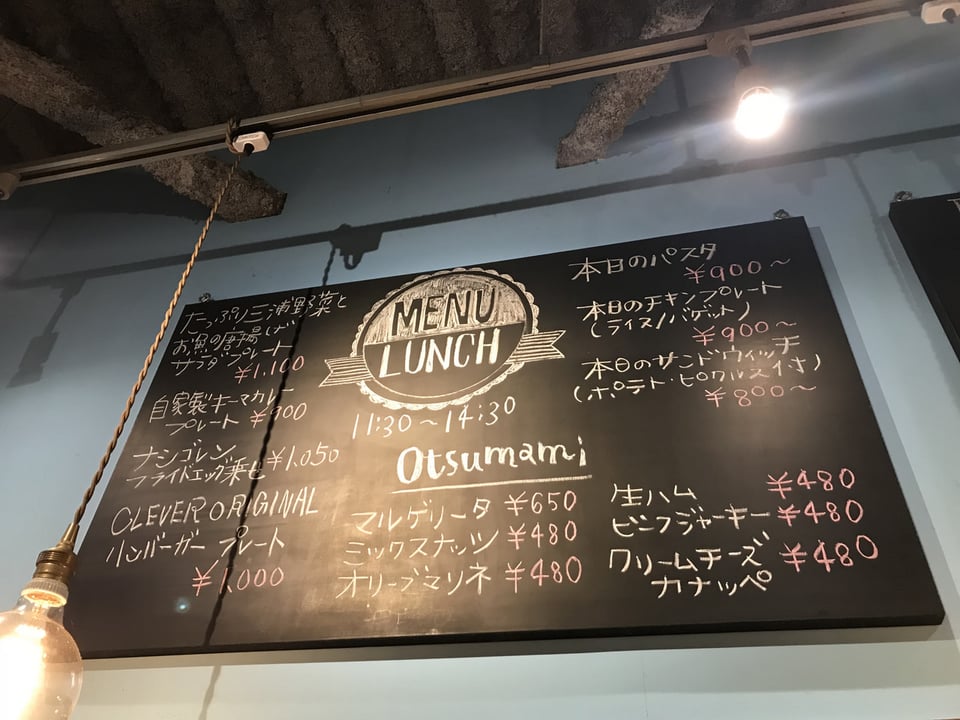 たっぷり三浦野菜と
お魚の唐揚げ
サラダプレート
¥1,100
自家製キーマカレー
プレート ¥900
ナシゴレン ¥1,050
フライドエッグ乗せ
CLEVER ORIGINAL
ハンバーガー プレート
¥1,000
MENU
LUNCH
11:30～14:30
本日のパスタ
¥900～
本日のチキンプレート
(ライス/バゲット)
¥900～
本日のサンドウィッチ
(ポテト・ピクルス付)
¥800～
Otsumami
マルゲリータ ¥650
ミックスナッツ ¥480
オリーブマリネ ¥480
生ハム ¥480
ビーフジャーキー ¥480
クリームチーズ ¥480
カナッペ